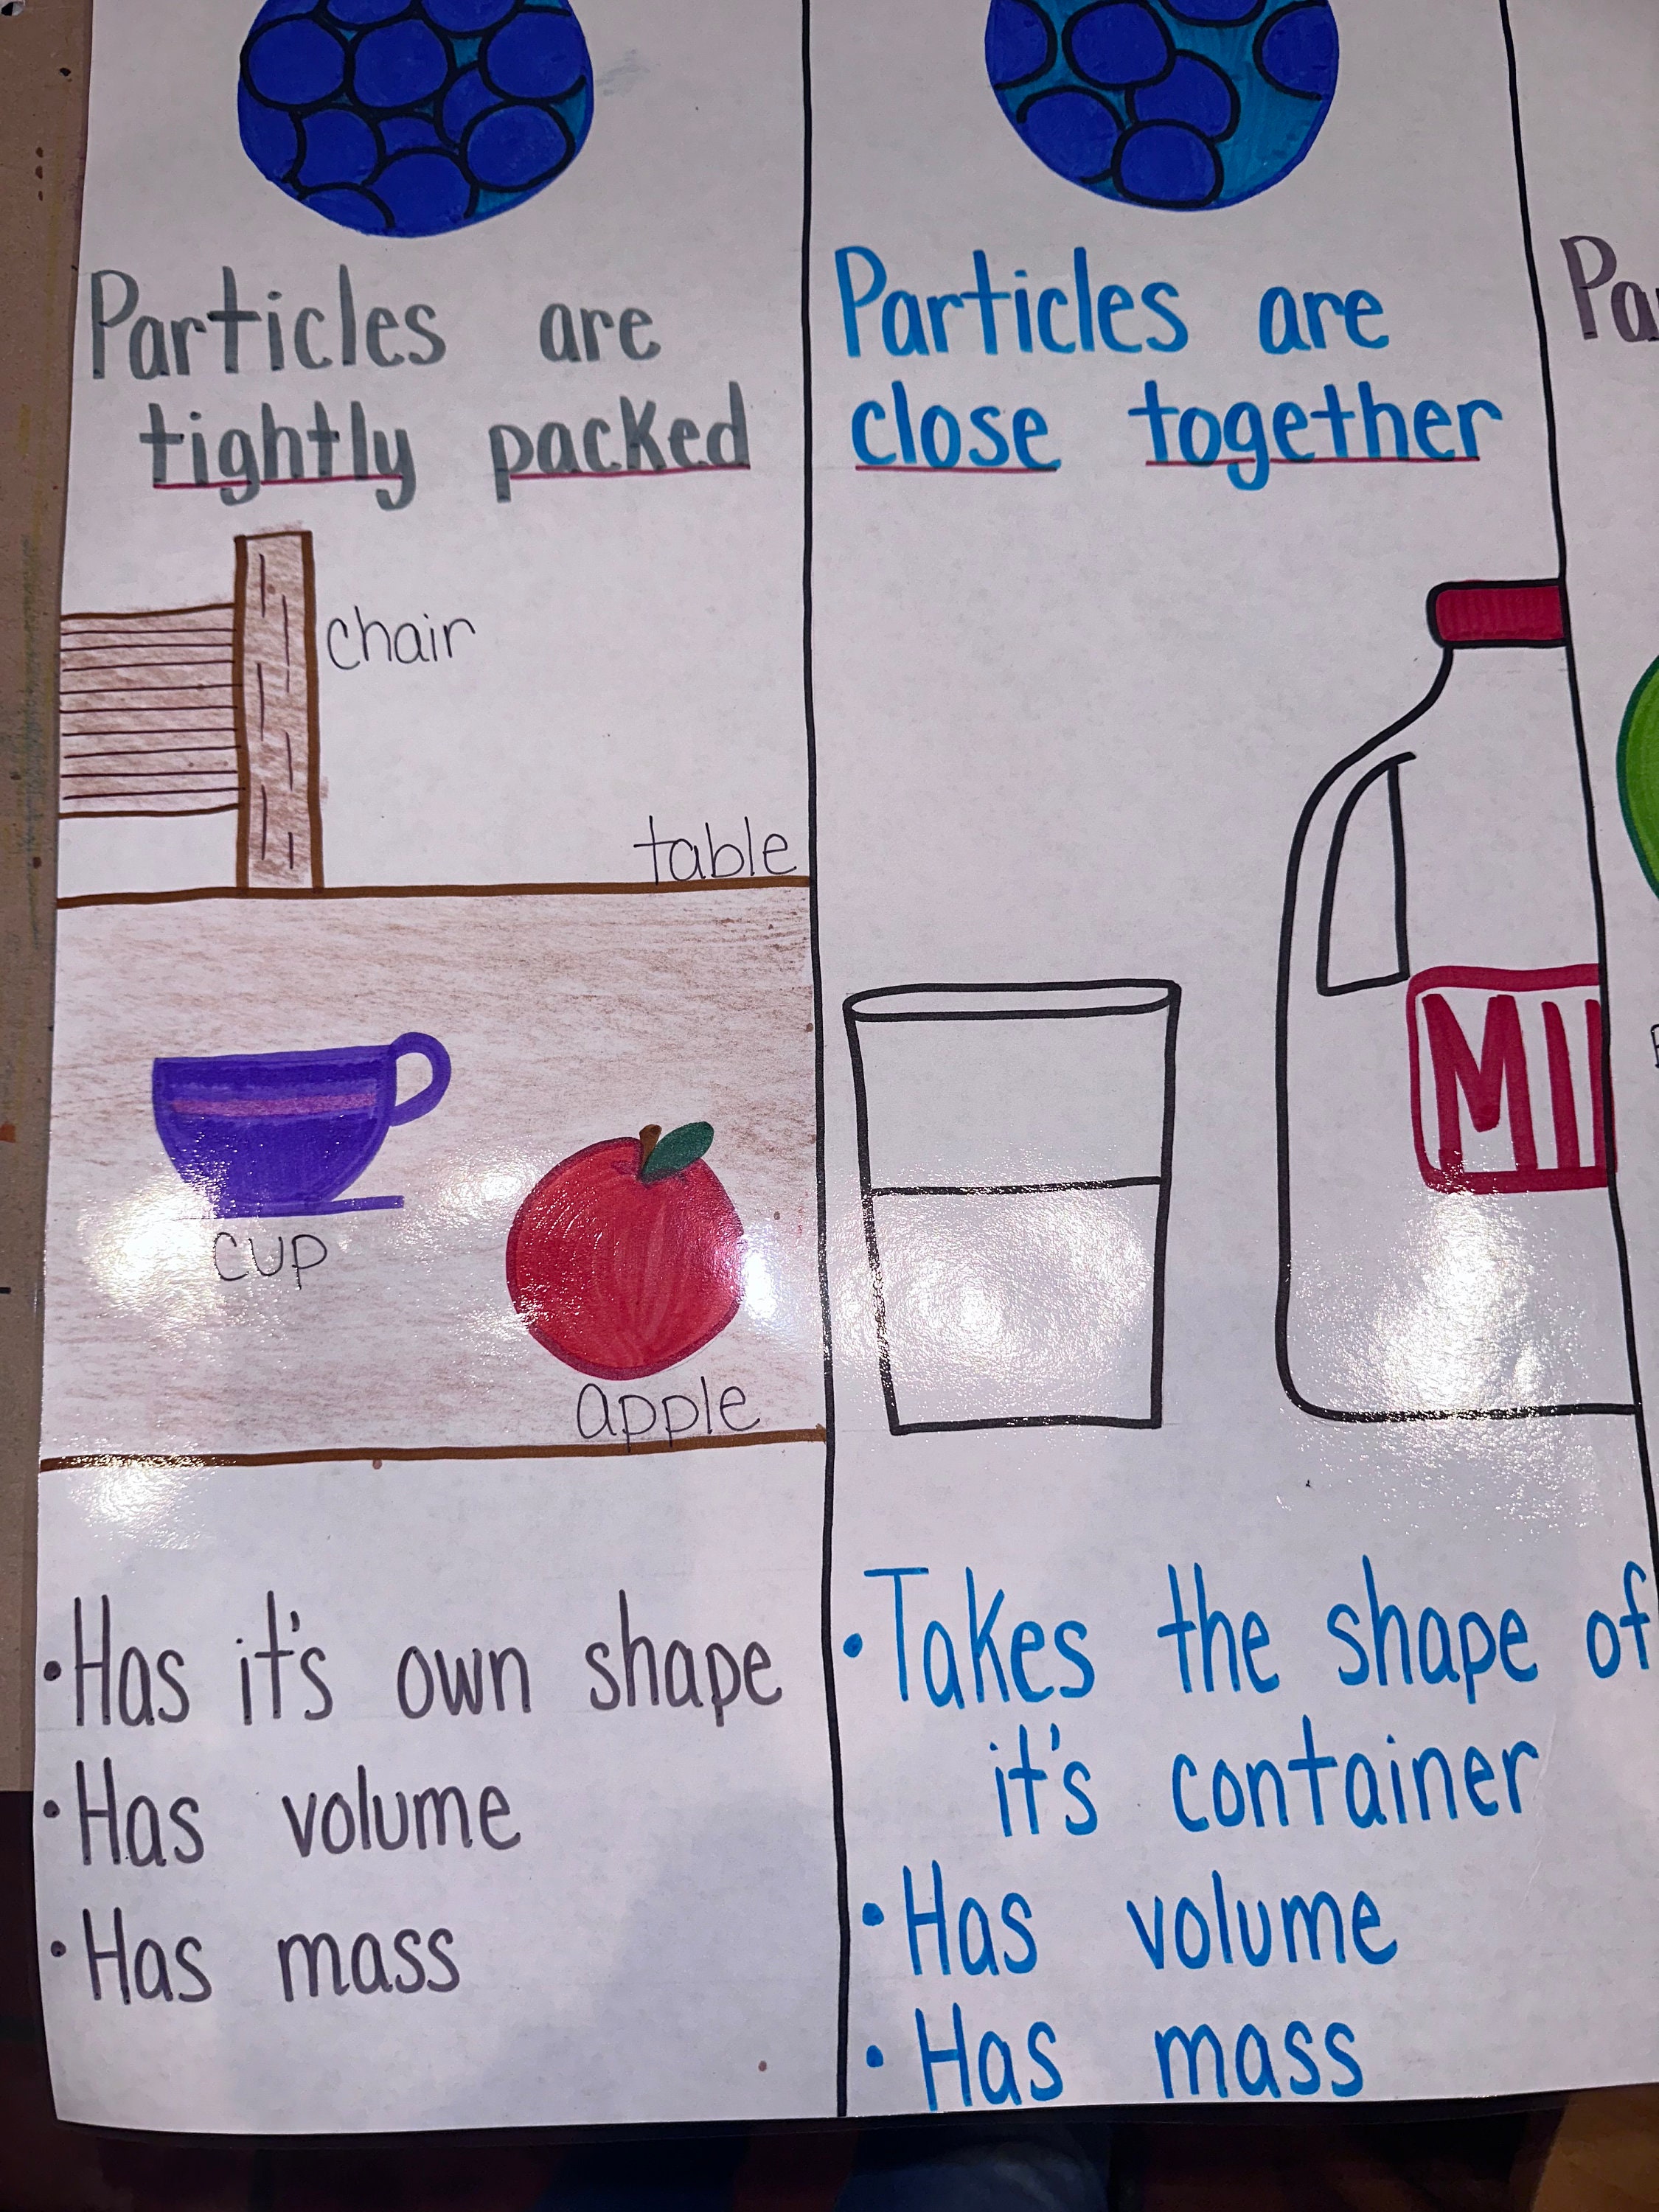 Particles are
tightly packed
chair
table
cup
apple
•Has it's own shape
•Has volume
•Has mass
Particles are
close together
MI
•Takes the shape of
it's container
•Has volume
•Has mass
Pa